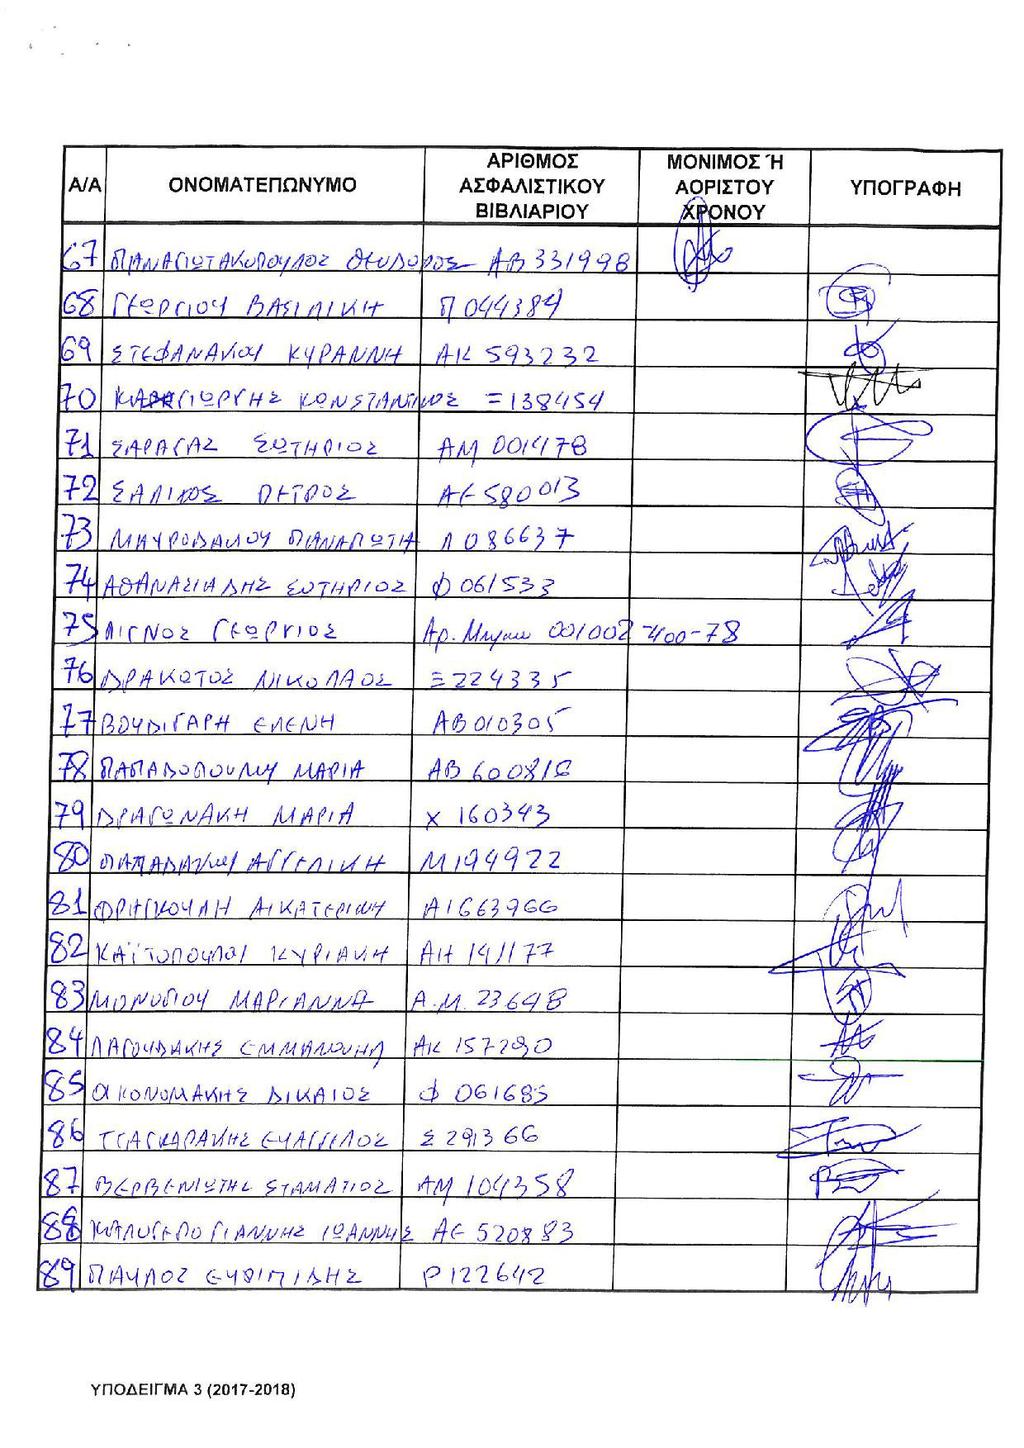 Α/Α ΟΝΟΜΑΤΕΠΩΝΥΜΟ ΑΡΙΘΜΟΣ ΑΣΦΑΛΙΣΤΙΚΟΥ ΒΙΒΛΙΑΡΙΟΥ ΜΟΝΙΜΟΣ Ή ΑΟΡΙΣΤΟΥ ΧΡΟΝΟΥ ΥΠΟΓΡΑΦΗ
67 ΠΑΝΑΓΙΩΤΑΚΟΠΟΥΛΟΣ ΘΕΟΔΩΡΟΣ ΑΒ 331998
68 ΓΕΩΡΓΙΟΥ ΒΑΣΙΛΙΚΗ Π 044384
69 ΣΤΕΦΑΝΑΚΙΟΥ ΚΥΡΑΝΝΗ ΑΚ 593232
70 ΚΑΡΑΓΙΩΡΓΗΣ ΚΩΝΣΤΑΝΤΙΝΟΣ Ξ 138454
71 ΣΑΡΑΓΑΣ ΣΩΤΗΡΙΟΣ ΑΜ 001478
72 ΣΑΛΙΚΟΣ ΠΕΤΡΟΣ ΑΕ 580013
73 ΜΑΥΡΟΔΑΚΟΥ ΠΑΝΑΓΙΩΤΑ Λ 086637
74 ΑΘΑΝΑΣΙΑΔΗΣ ΣΩΤΗΡΙΟΣ Φ 061533
75 ΛΙΓΝΟΣ ΓΕΩΡΓΙΟΣ Αρ. 001002-400-78
76 ΔΡΑΚΩΤΟΣ ΝΙΚΟΛΑΟΣ Ξ 224335
77 ΒΟΥΔΙΓΑΡΗ ΕΛΕΝΗ ΑΒ 010305
78 ΠΑΠΑΔΟΠΟΥΛΟΥ ΜΑΡΙΑ ΑΒ 600816
79 ΔΡΑΓΩΝΑΚΗ ΜΑΡΙΑ Χ 160343
80 ΑΓΓΕΛΙΚΗ Μ 194922
81 ΦΡΑΓΚΟΥΛΗ ΑΙΚΑΤΕΡΙΝΗ ΑΙ 663966
82 ΚΑΪΤΟΠΟΥΛΟΥ ΚΥΡΙΑΚΗ ΑΗ 141177
83 ΜΟΝΟΓΙΟΥ ΜΑΡΙΑΝΝΑ Α.Μ. 23648
84 ΛΑΓΟΥΔΑΚΗΣ ΕΜΜΑΝΟΥΗΛ ΑΚ 157290
85 ΟΙΚΟΝΟΜΑΚΗΣ ΔΙΚΑΙΟΣ Φ 061685
86 ΤΣΑΓΚΑΡΑΚΗΣ ΕΥΑΓΓΕΛΟΣ Σ 291366
87 ΒΕΡΒΕΝΙΩΤΗΣ ΣΤΑΜΑΤΙΟΣ ΑΜ 104358
88 ΚΑΛΟΓΕΡΟΓΙΑΝΝΗΣ ΙΩΑΝΝΗΣ ΑΕ 520883
89 ΠΑΥΛΟΣ ΕΥΡΙΠΙΔΗΣ Ρ 122642
ΥΠΟΔΕΙΓΜΑ 3 (2017-2018)